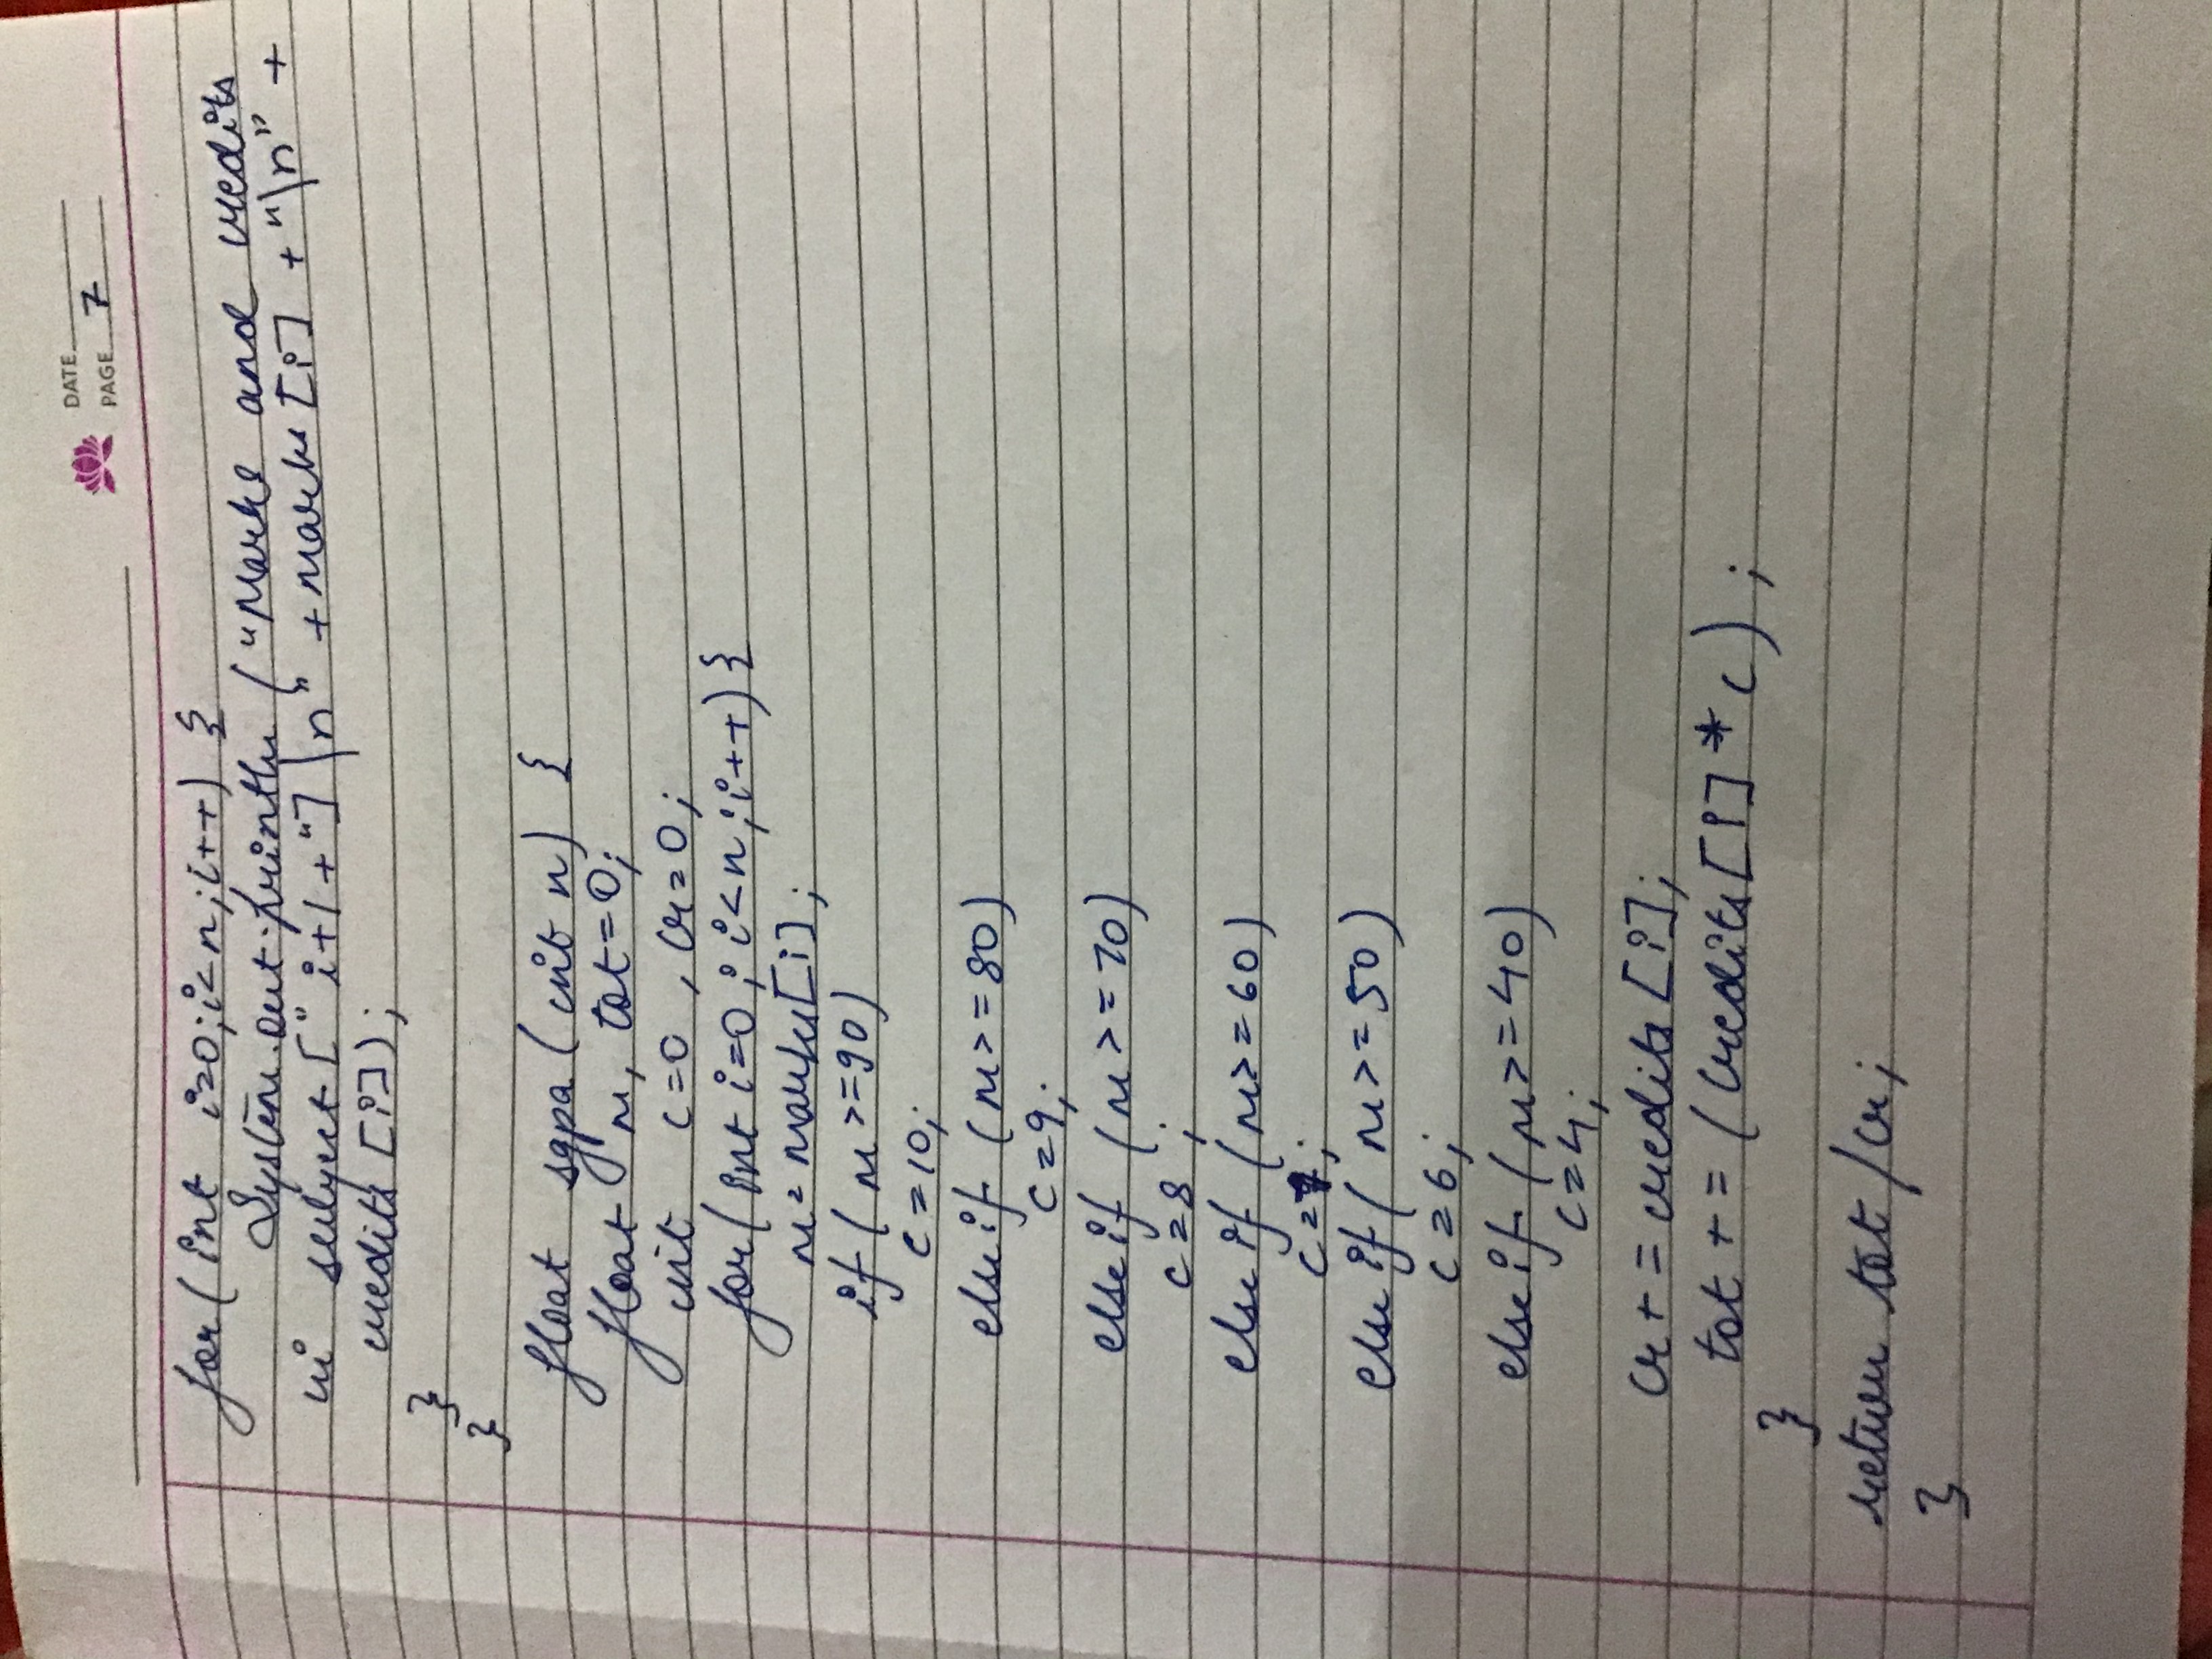 DATE
PAGE 7
for(int i=0;i<n;i++) {
System.out.println("Marks and credits
in subject[" i+1+"]\n" +marks[i] +"\n" +
credits[i]);
}
}
float sgpa(int n) {
float m, tot=0;
int c=0, cr=0;
for(int i=0; i<n; i++){
m=marks[i];
if( m>=90)
c=10;
else if (m>=80)
c=9;
else if (m>=70)
c=8;
else if (m>=60)
c=7;
else if( m>=50)
c=6;
else if (m>=40)
c=4;
cr+=credits[i];
tot+=(credits[i]*c);
}
return tot/cr;
}